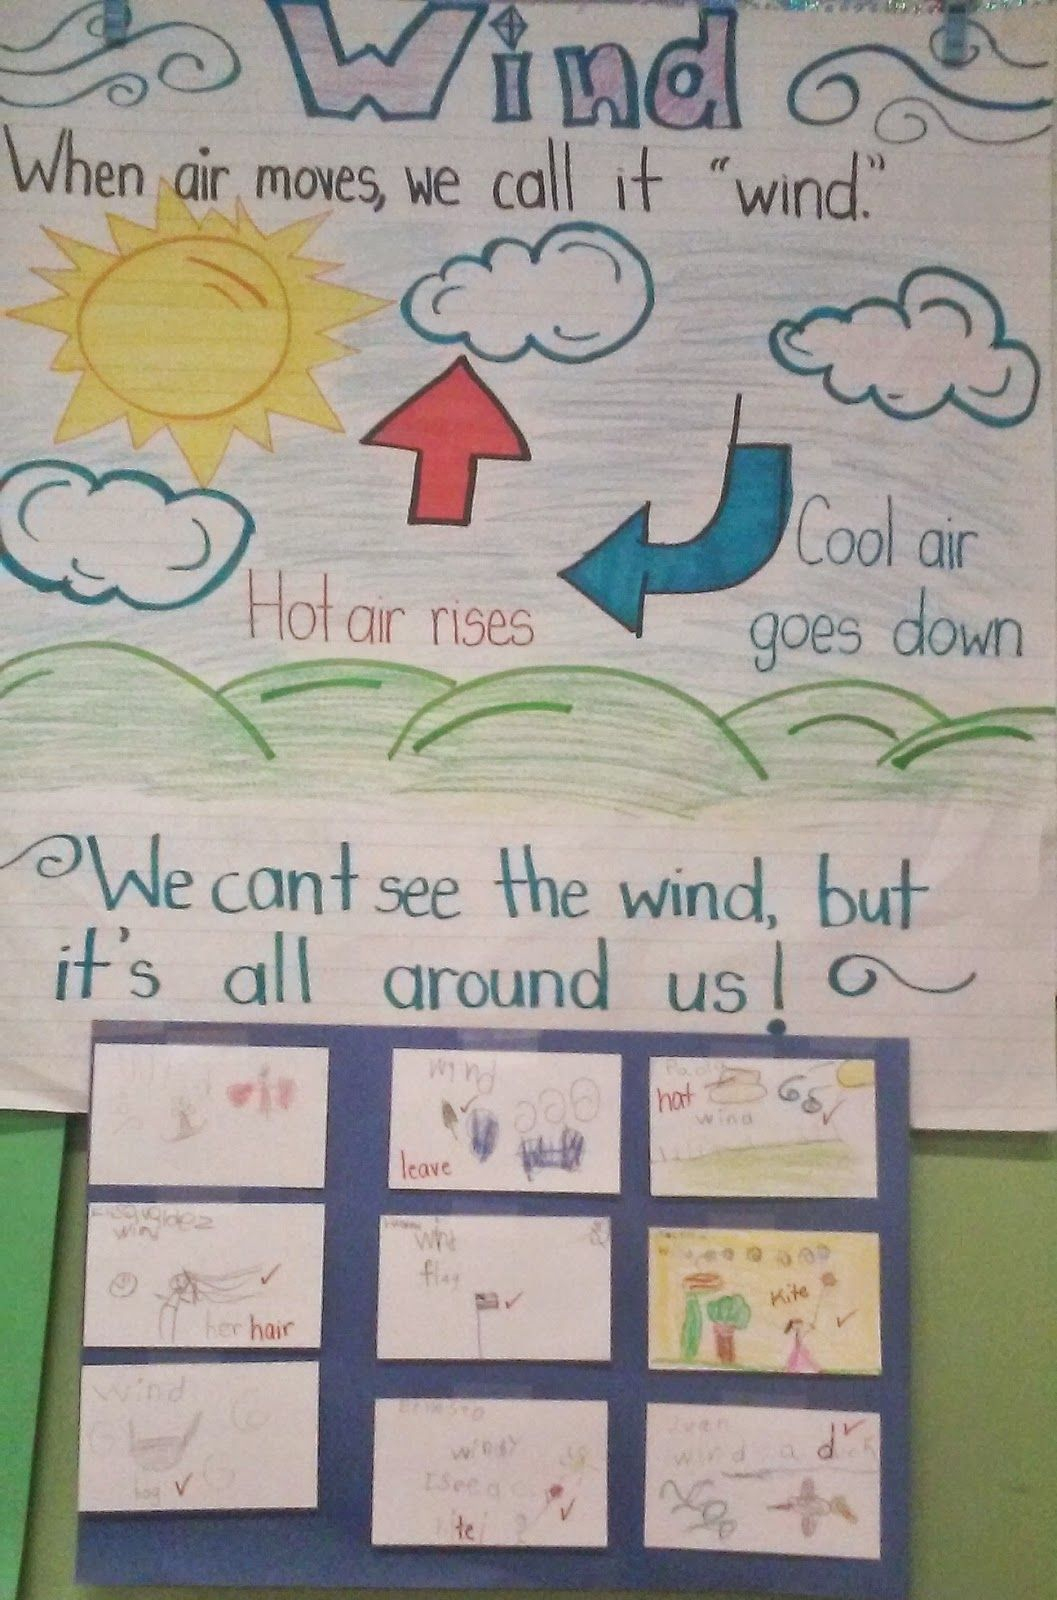 Wind
When air moves, we call it "wind."
Hot air rises
Cool air
goes down
We cant see the wind, but
it's all around us!
wind
leave
hat
wind
wind
her hair
wind
flag
Kite
wind
windy
I see a
Ivan
wind a